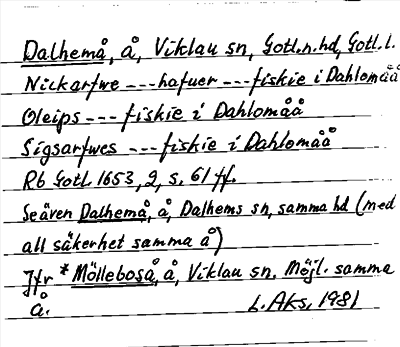 Dalhemå, å, Viklau sn, Gotl.n.hd, Gotl.l.
Nickarfwe --- hafuer --- fiskie i Dahlomåå
Oleips --- fiskie i Dahlomåå
Sigsarfwes --- fiskie i Dahlomåå
Rb Gotl. 1653, 2, s. 61 ff.
Se även Dalhemå, å, Dalhems sn, samma hd (med
all säkerhet samma å)
Jfr *Mölleboså, å, Viklau sn. Möjl. samma
å. L. Aks, 1981